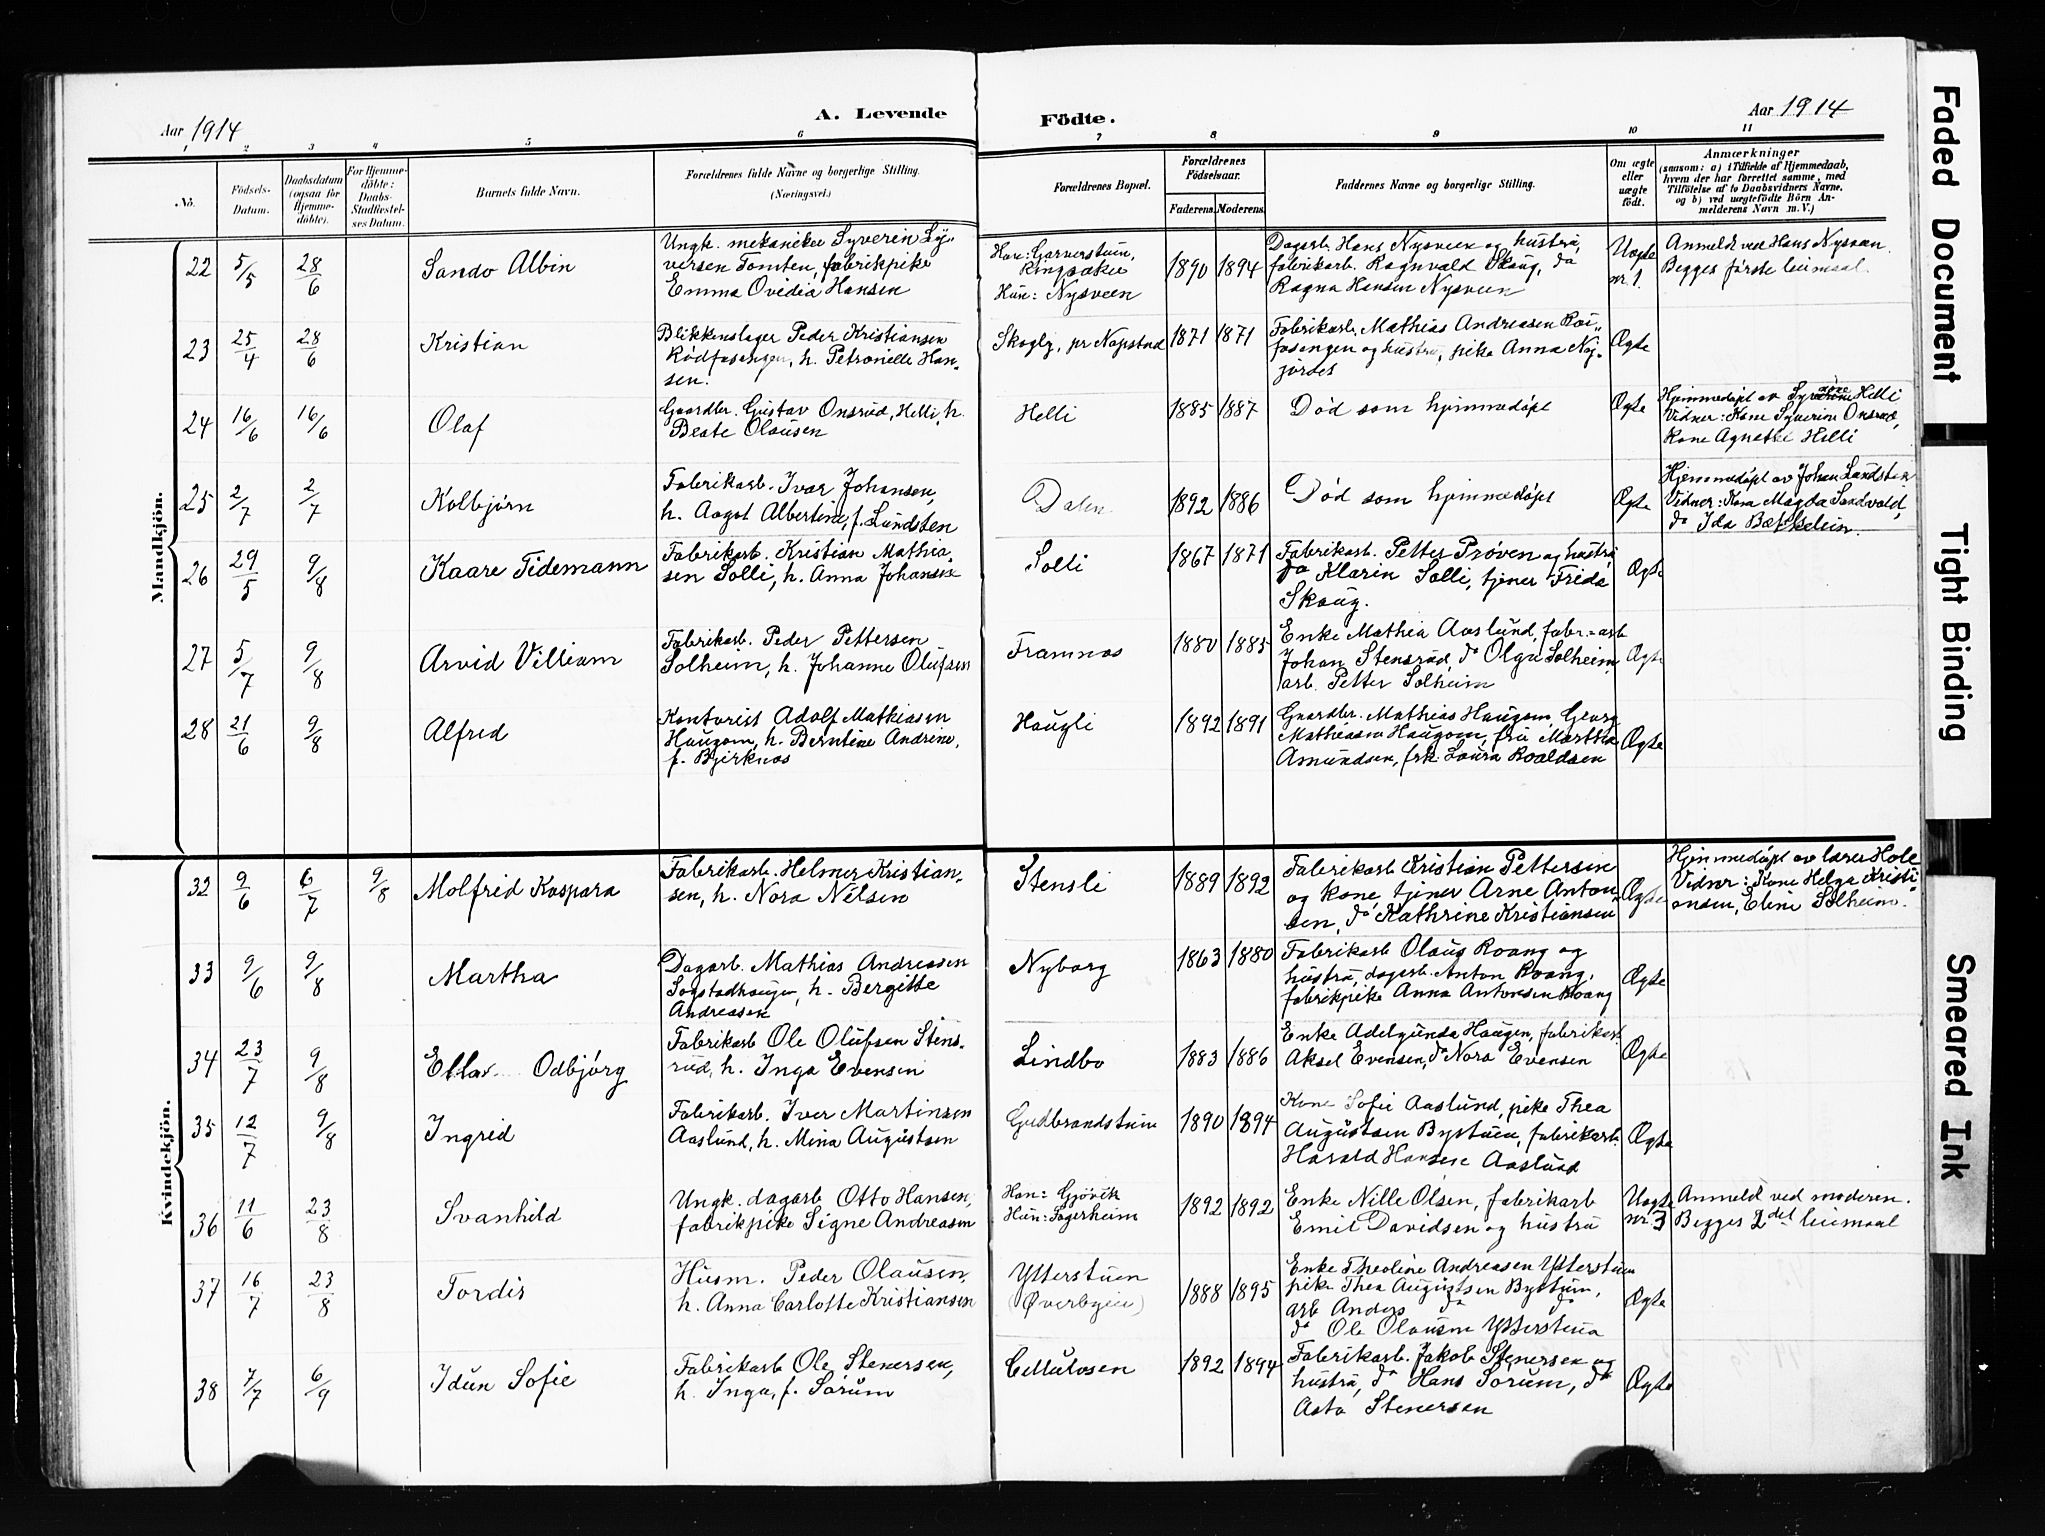 A. Levende Födte.
Aar 1914
Aar 1914
1 2 3 4 5 6 7 8 9 10 11
No.
Födsels-Datum.
Daabsdatum (ogsaa for Hjemmedöbte).
For Hjemmedöbte: Daabs-Stadfæstelses Datum.
Barnets fulde Navn.
Forældrenes fulde Navne og borgerlige Stilling.
(Næringsvei.)
Forældrenes Bopæl.
Forældrenes Födselsaar.
Faderens. Moderens.
Faddernes Navne og borgerlige Stilling.
Om ægte eller uægte födt.
Anmærkninger
(saasom: a) i Tilfælde af Hjemmedaab, hvem der har forrettet samme, med Tilföielse af to Daabsvidners Navne, og b) ved uægtefödte Börn Anmelderens Navn m. V.)
Mandkjön.
22 5/5 28/6 Sando Albin
Ungk. mekaniker Syverin Sy-
versen Tomten, fabrikpike
Emma Ovidia Hansen
Han: Garverstuen,
Ringsaker
Hun: Nysveen
1890 1894
Dagarb. Hans Nysveen og hustru,
fabrikarb. Ragnvald Skaug, do
Ragna Hansen Nysveen
Uægte
nr. 1.
Anmeldt ved Hans Nysveen.
Begges første leiermaal.
23 25/4 28/6 Kristian
Blikkenslager Peder Kristiansen
Rødfosengen, h. Petronelle Han-
sen.
Skogly, pr Nagstad
1871 1871
Fabrikarb. Mathias Andreasen Roi-
fosengen og hustru, pike Anna Ny-
jordet
Ægte
24 16/6 16/6 Olaf
Gaardbr. Gustav Onsrud, Helli, h.
Beate Olausen
Helli
1885 1887
Død som hjemmedøpt
Ægte
Hjemmedøpt av Helli
Vidner: Kone Syverine Onsrud,
kone Agnethe Helli
25 2/7 2/7 Kolbjørn
Fabrikarb. Ivar Johansen,
h. Aagot Albertine, f. Lundsten
Dalen
1892 1886
Død som hjemmedøpt
Ægte
Hjemmedøpt av Johan Lundsten
Vidner: Kone Magda Sandvold,
do Ida
26 29/5 9/8 Kaare Tidemann
Fabrikarb. Kristian Mathia-
sen Solli, h. Anna Johansen
Solli
1867 1871
Fabrikarb. Petter Prøven og hustru
do Klarin Solli, tjener Frida
Skaug.
Ægte
27 5/7 9/8 Arvid Villiam
Fabrikarb. Peder Pettersen
Solheim, h. Johanne Olufsen
Framnes
1880 1885
Enke Mathea Aaslund, fabr.=arb
Johan Stensrud, do Olga Solheim,
arb. Petter Solheim
Ægte
28 21/6 9/8 Alfred
Kontorist Adolf Mathiasen
Haugom, h. Berntine Andrine,
f. Bjerknes
Haugli
1892 1891
Gaardbr. Mathias Haugom, Georg
Mathiasen Haugom, fru Martha
Amundsen, frk. Laura Roaldsen
Ægte
Kvindekjön.
32 9/6 6/7 9/8 Molfrid Kaspara
Fabrikarb. Helmer Kristian-
sen, h. Nora Nilsen
Stensli
1889 1892
Fabrikarb Kristian Pettersen
og kone, tjener Arne Anton-
sen, do Kathrine Kristiansen
Ægte
Hjemmedøpt av lærer Hole
Vidner: Kone Helga Kristi-
ansen, Eline Solheim.
33 9/6 9/8 Martha
Dagarb. Mathias Andreasen
Sogstadhaugen, h. Bergitte
Andreasen
Nyborg
1863 1880
Fabrikarb Olaus Roang og
hustru, dagarb. Anton Roang,
fabrikpike Anna Antonsen Roang
Ægte
34 23/7 9/8 Ella Odbjørg
Fabrikarb Ole Olufsen Stens-
rud, h. Inga Evensen
Lindbo
1883 1886
Enke Adelgunda Haugen, fabrikarb.
Aksel Evensen, do Nora Evensen
Ægte
35 12/7 9/8 Ingrid
Fabrikarb. Iver Martinsen
Aaslund, h. Mina Augustsen
Gudbrandstuen
1890 1894
Kone Sofie Aaslund, pike Thea
Augustsen Bystuen, fabrikarb.
Harald Hansen Aaslund
Ægte
36 11/6 23/8 Svanhild
Ungk. dagarb Otto Hansen,
fabrikpike Signe Andreasen
Han: Gjøvik
Hun: Sagerheim
1892 1892
Enke Nille Olsen, fabrikarb
Emil Davidsen og hustru
Uægte
nr. 3
Anmeldt ved moderen.
Begges 2det leiermaal
37 16/7 23/8 Tordis
Husm. Peder Olausen,
h. Anna Carlotte Kristiansen
Ytterstuen
(Øverbyen)
1888 1895
Enke Theoline Andreasen Ytterstuen
pike Thea Augustsen Bystuen,
arb Anders do do
do Ole Olausen Ytterstuen
Ægte
38 7/7 6/9 Idun Sofie
Fabrikarb Ole Stenersen,
h. Inga, f. Sørum
Cellulosen
1892 1894
Fabrikarb. Jakob Stenersen og
hustru, do Hans Sørum, do
Asta Stenersen
Ægte
Faded Document
Tight Binding
Smeared Ink